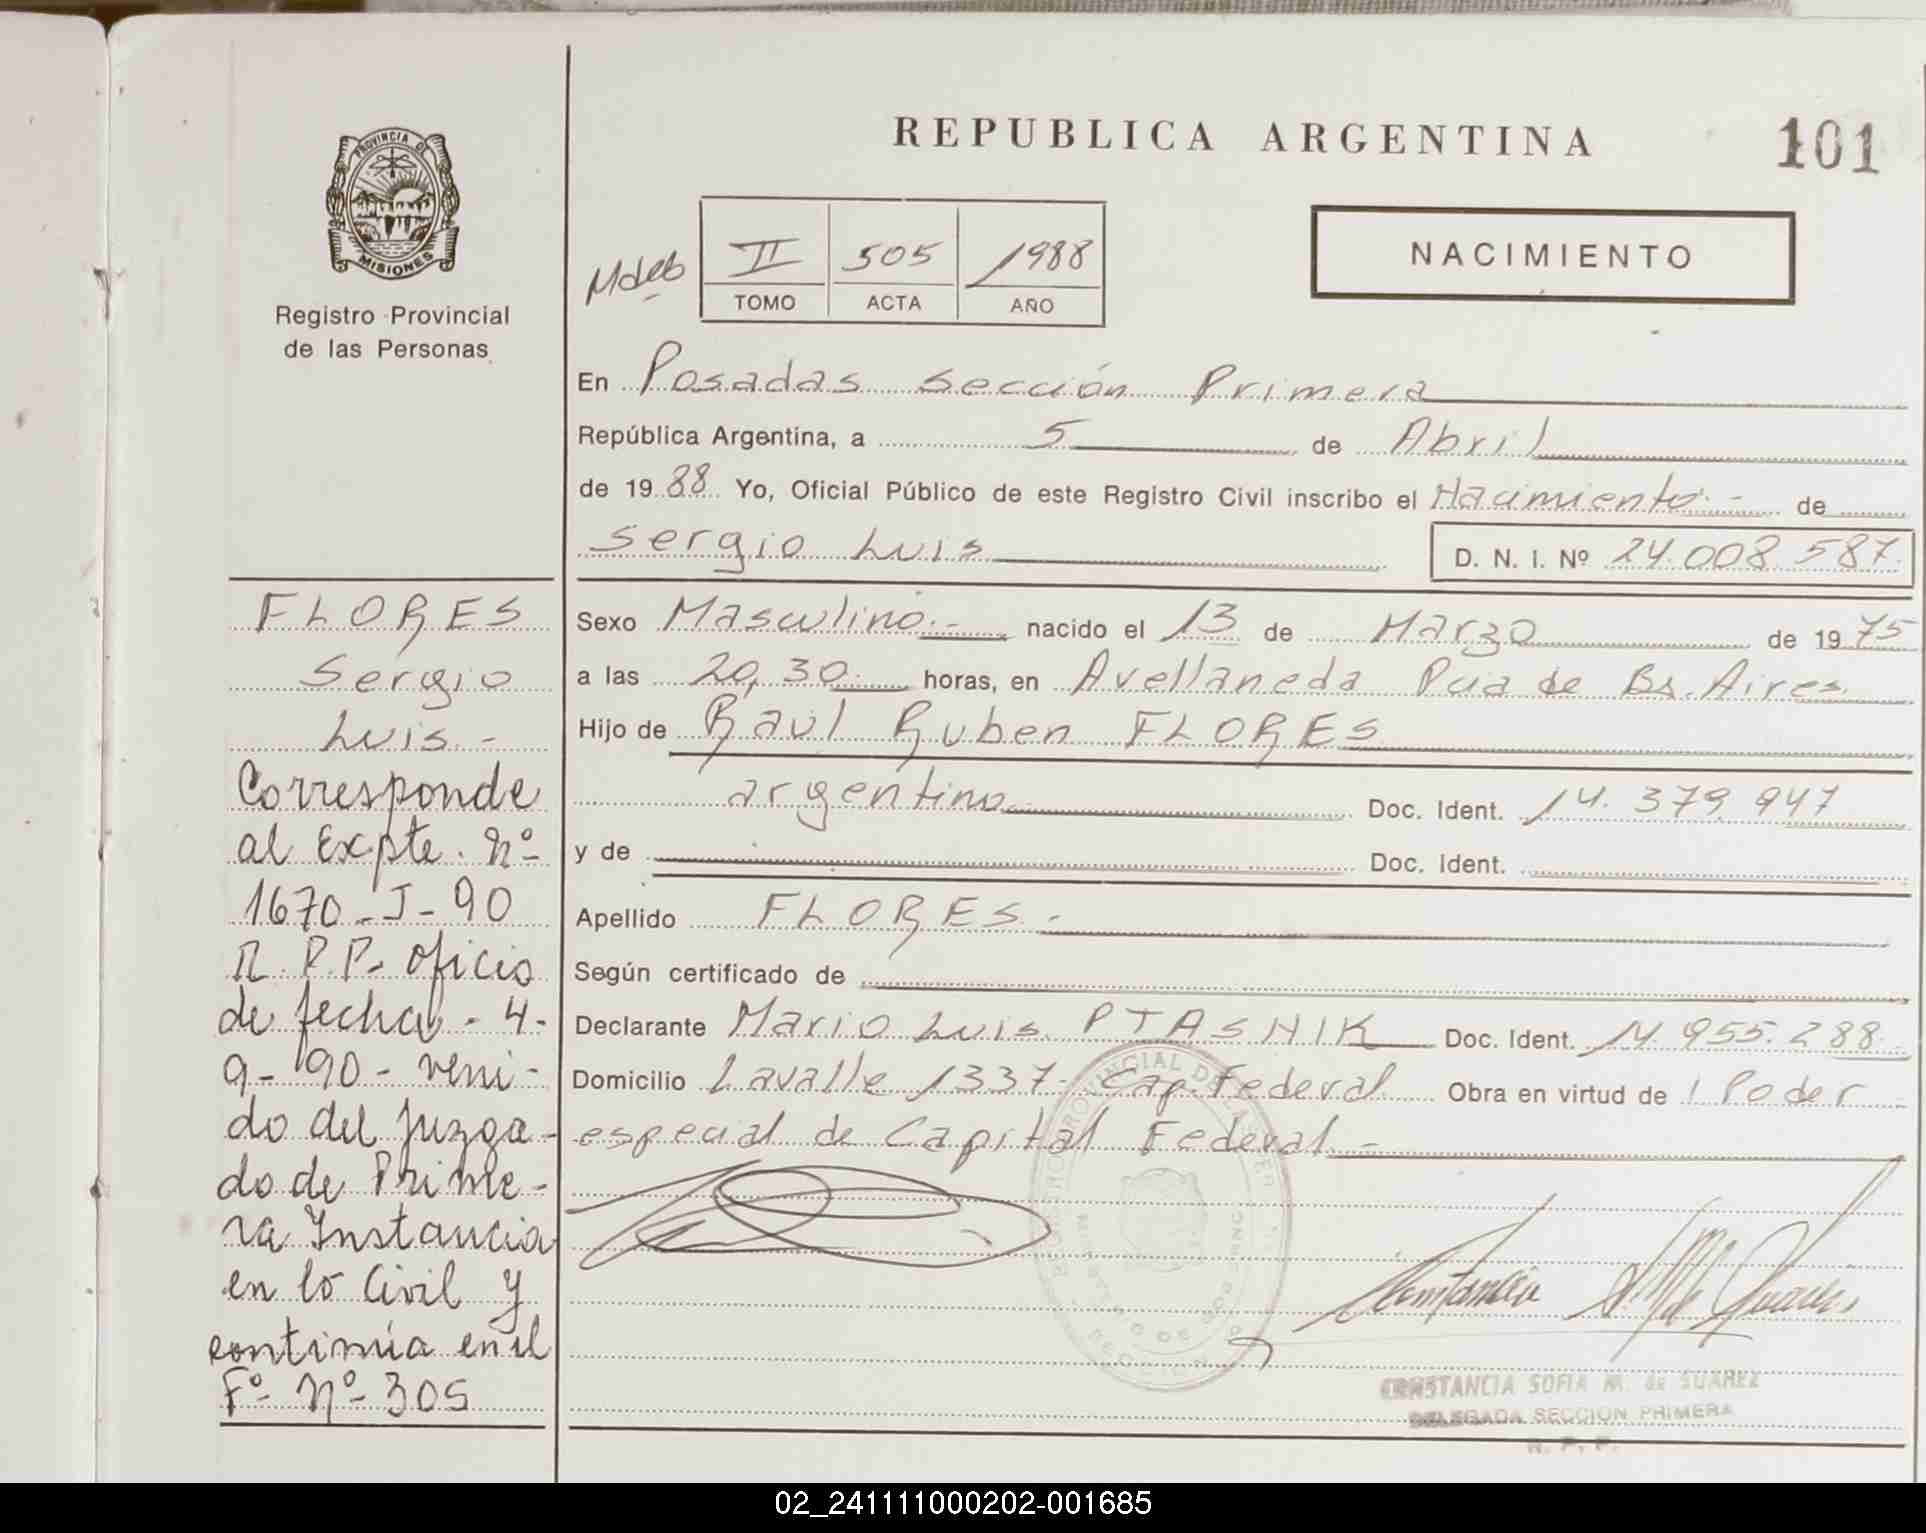 REPUBLICA ARGENTINA
101
PROVINCIA DE
MISIONES
Registro Provincial
de las Personas
II 505 1988
TOMO ACTA AÑO
NACIMIENTO
En Posadas Sección Primera
República Argentina, a 5 de Abril
de 1988 Yo, Oficial Público de este Registro Civil inscribo el Nacimiento.- de
Sergio Luis D. N. I. Nº 24.008.587.
Sexo Masculino.- nacido el 13 de Marzo de 1975
a las 20,30 horas, en Avellaneda Pcia de Bs. Aires
Hijo de Raúl Ruben FLORES
argentino Doc. Ident. 14.379.947
y de Doc. Ident.
Apellido FLORES.-
Según certificado de
Declarante Mario Luis PTASNIK Doc. Ident. 14.955.288
Domicilio Lavalle 1337 - Cap. Federal Obra en virtud de 1 Poder
especial de Capital Federal.-
CONSTANCIA SOFIA M. de SUAREZ
DELEGADA SECCION PRIMERA
R. P. P.
FLORES
Sergio
Luis.-
Corresponde
al Expte. Nº
1670-J-90
R.P.P. oficio
de fecha - 4-
9-90- veni-
do del Juzga-
do de Prime-
ra Instancia
en lo Civil y
continúa en el
Fº Nº 305
02_241111000202-001685